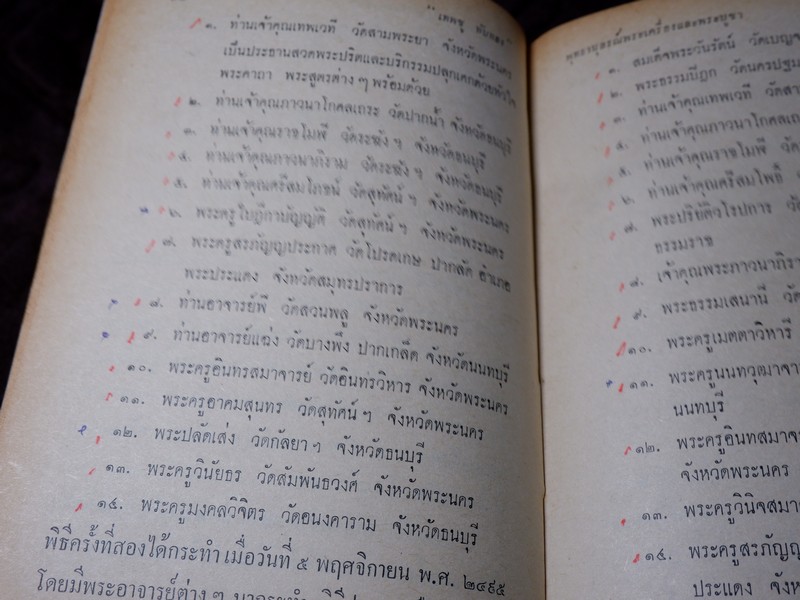 "เทพชุ
๑. ท่านเจ้าคุณเทพเวที วัดสามพระยา จังหวัดพระนคร
เป็นประธานสวดพระปริตและบริกรรมปลุกเศกด้วยหัวใจ
พระคาถา พระสูตรต่าง ๆ พร้อมด้วย
๒. ท่านเจ้าคุณภาวนาโกศลเถระ วัดปากน้ำ จังหวัดธนบุรี
๓. ท่านเจ้าคุณราชโมฬี วัดระฆัง ฯ จังหวัดธนบุรี
๔. ท่านเจ้าคุณภาวนาภิราม วัดระฆัง ฯ จังหวัดธนบุรี
๕. ท่านเจ้าคุณศรีสมโภชน์ วัดสุทัศน์ ฯ จังหวัดพระนคร
๖. พระครูใบฎีกาบัญญัติ วัดสุทัศน์ ฯ จังหวัดพระนคร
๗. พระครูสรภัญญประกาศ วัดโปรดเกษ ปากลัด อำเภอ
พระประแดง จังหวัดสมุทรปราการ
๘. ท่านอาจารย์พึ วัดสวนพลู จังหวัดพระนคร
๙. ท่านอาจารย์แฉ่ง วัดบางพึง ปากเกล็ด จังหวัดนนทบุรี
๑๐. พระครูอินทรสมาจารย์ วัดอินทรวิหาร จังหวัดพระนคร
๑๑. พระครูอาคมสุนทร วัดสุทัศน์ ฯ จังหวัดพระนคร
๑๒. พระปลัดเส่ง วัดกัลยา ฯ จังหวัดธนบุรี
๑๓. พระครูวินัยธร วัดสัมพันธวงศ์ จังหวัดพระนคร
๑๔. พระครูมงคลวิจิตร วัดอนงคาราม จังหวัดธนบุรี
พิธีครั้งที่สองได้กระทำเมื่อวันที่ ๕ พฤศจิกายน พ.ศ. ๒๔๙๕
โดยมีพระอาจารย์ต่าง ๆ
พุทธานุสรณ์พระเครื่องและพระบูชา
๑. สมเด็จพระวันรัตน์ วัดเบญจ
๒. พระธรรมปิฎก วัดนครปฐม
๓. ท่านเจ้าคุณเทพเวที วัดสา
๔. ท่านเจ้าคุณภาวนาโกศลเถ
๕. ท่านเจ้าคุณราชโมฬี วัด
๖. ท่านเจ้าคุณศรีสมโพธิ์
๗. พระปริยัติวโรปการ วั
ธรรมราช
๘. เจ้าคุณพระภาวนาภิรา
๙. พระธรรมเสนานี วัด
๑๐. พระครูเมตตาวิหารี
๑๑. พระครูนนทวุฒาจา
นนทบุรี
๑๒. พระครูอินทสมาจา
จังหวัดพระนคร
๑๓. พระครูวินิจสมา
๑๔. พระครูสรภัญญ
ประแดง จังห